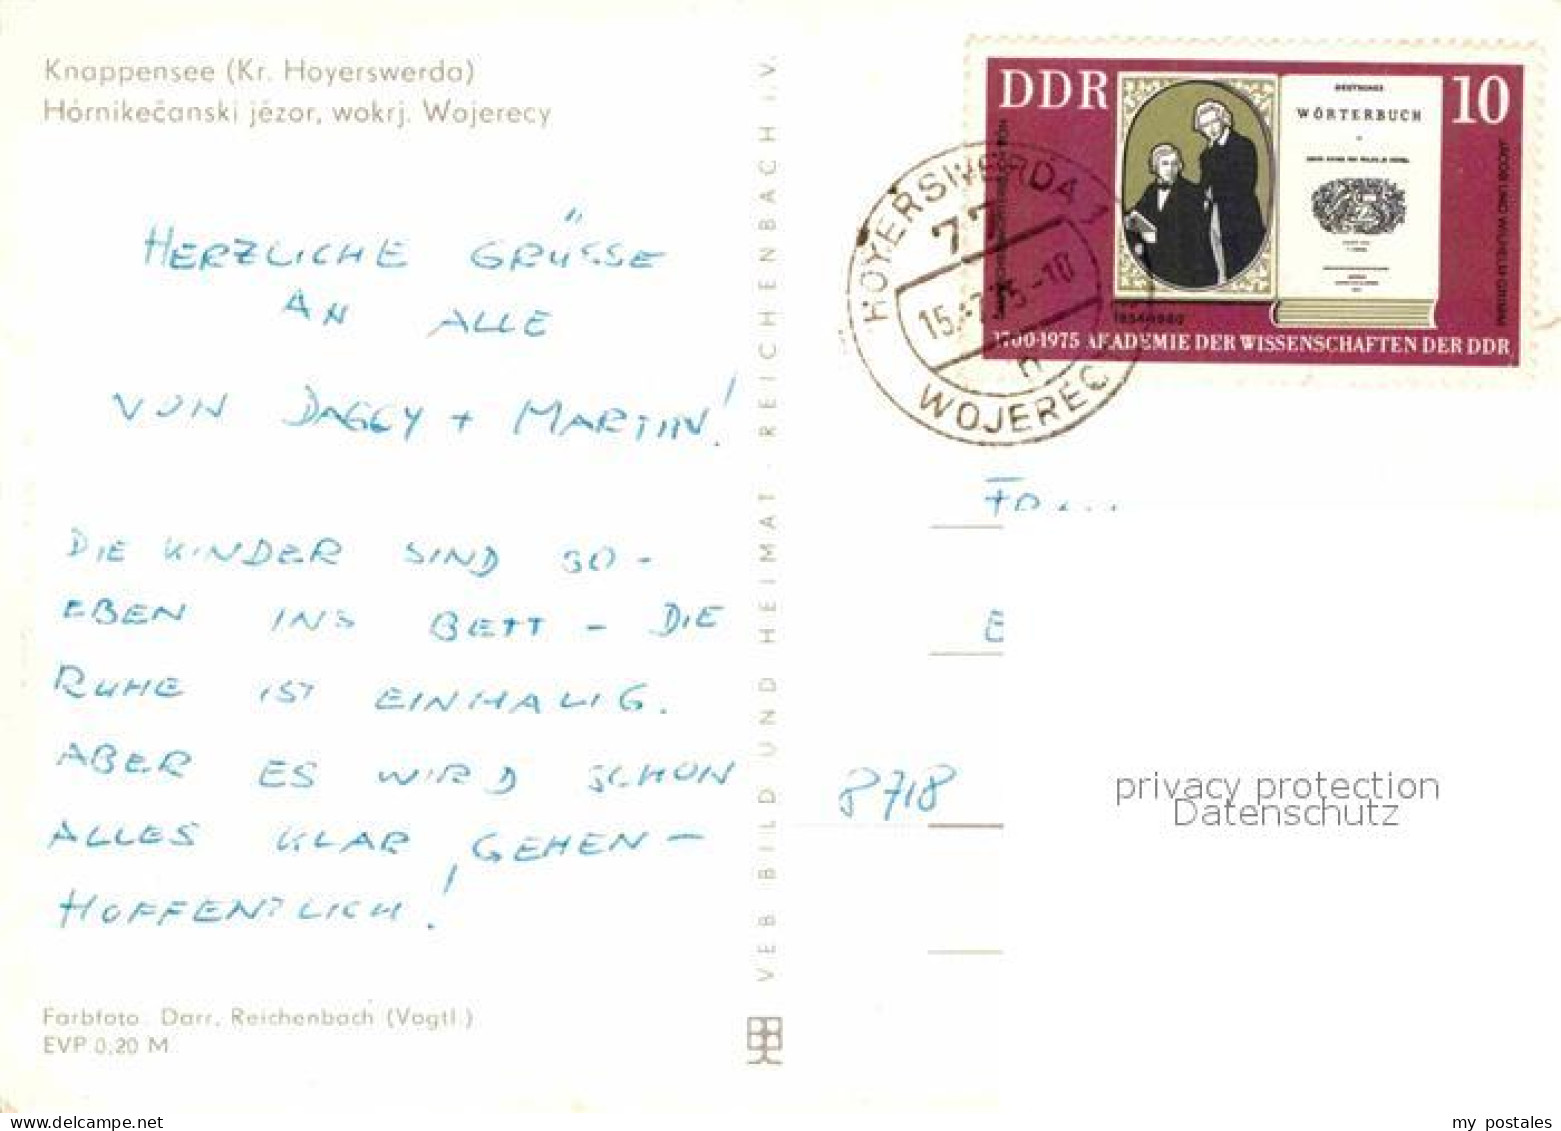 Knappensee (Kr. Hoyerswerda)
Hórnikečanski jězor, wokrj. Wojerecy
HERZLICHE GRÜSSE
AN ALLE
VON DAGGY + MARTIN!
DIE KINDER SIND SO-
EBEN INS BETT - DIE
RUHE IST EINMALIG.
ABER ES WIRD SCHON
ALLES KLAR GEHEN -
HOFFENTLICH!
Farbfoto: Darr, Reichenbach (Vogtl.)
EVP 0,20 M
VEB BILD UND HEIMAT · REICHENBACH I.V.
DDR
10
DEUTSCHES
WÖRTERBUCH
JACOB UND WILHELM GRIMM
1700-1975 AKADEMIE DER WISSENSCHAFTEN DER DDR
HOYERSWERDA 1
77
WOJERECY
8718
privacy protection
Datenschutz
my postales